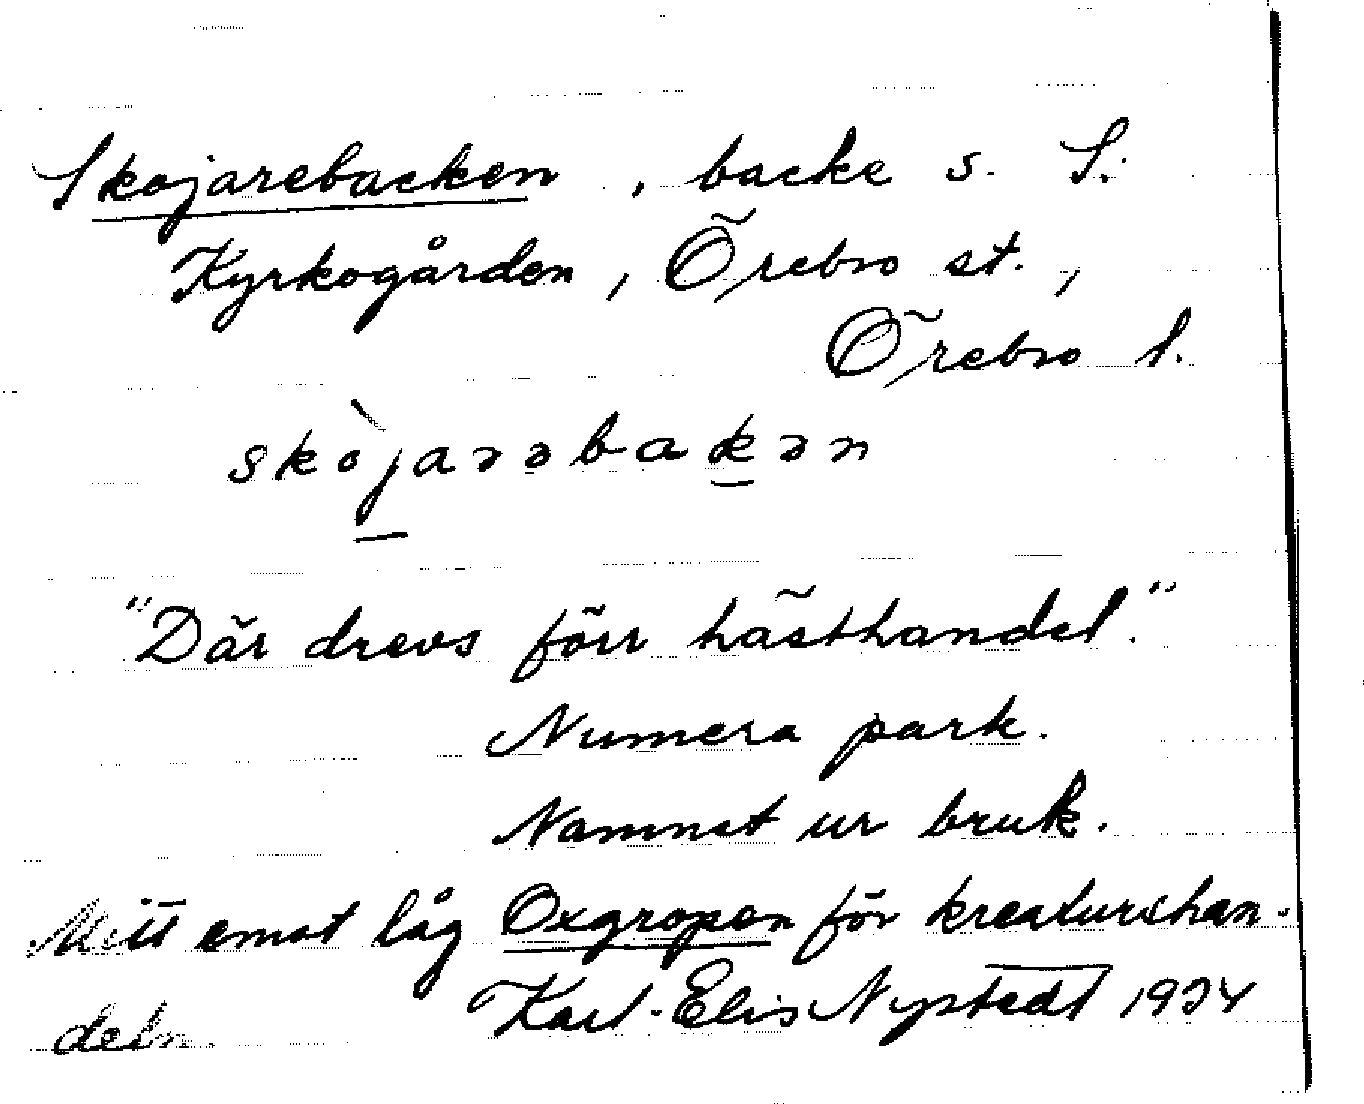 Skojarebacken, backe s. S:
Kyrkogården, Örebro st.,
Örebro l.
skòjarəbakən
"Där drevs förr hästhandel."
Numera park.
Namnet ur bruk.
Mitt emot låg Oxgropen för kreaturshan-
deln. Karl-Elis Nystedt 1934